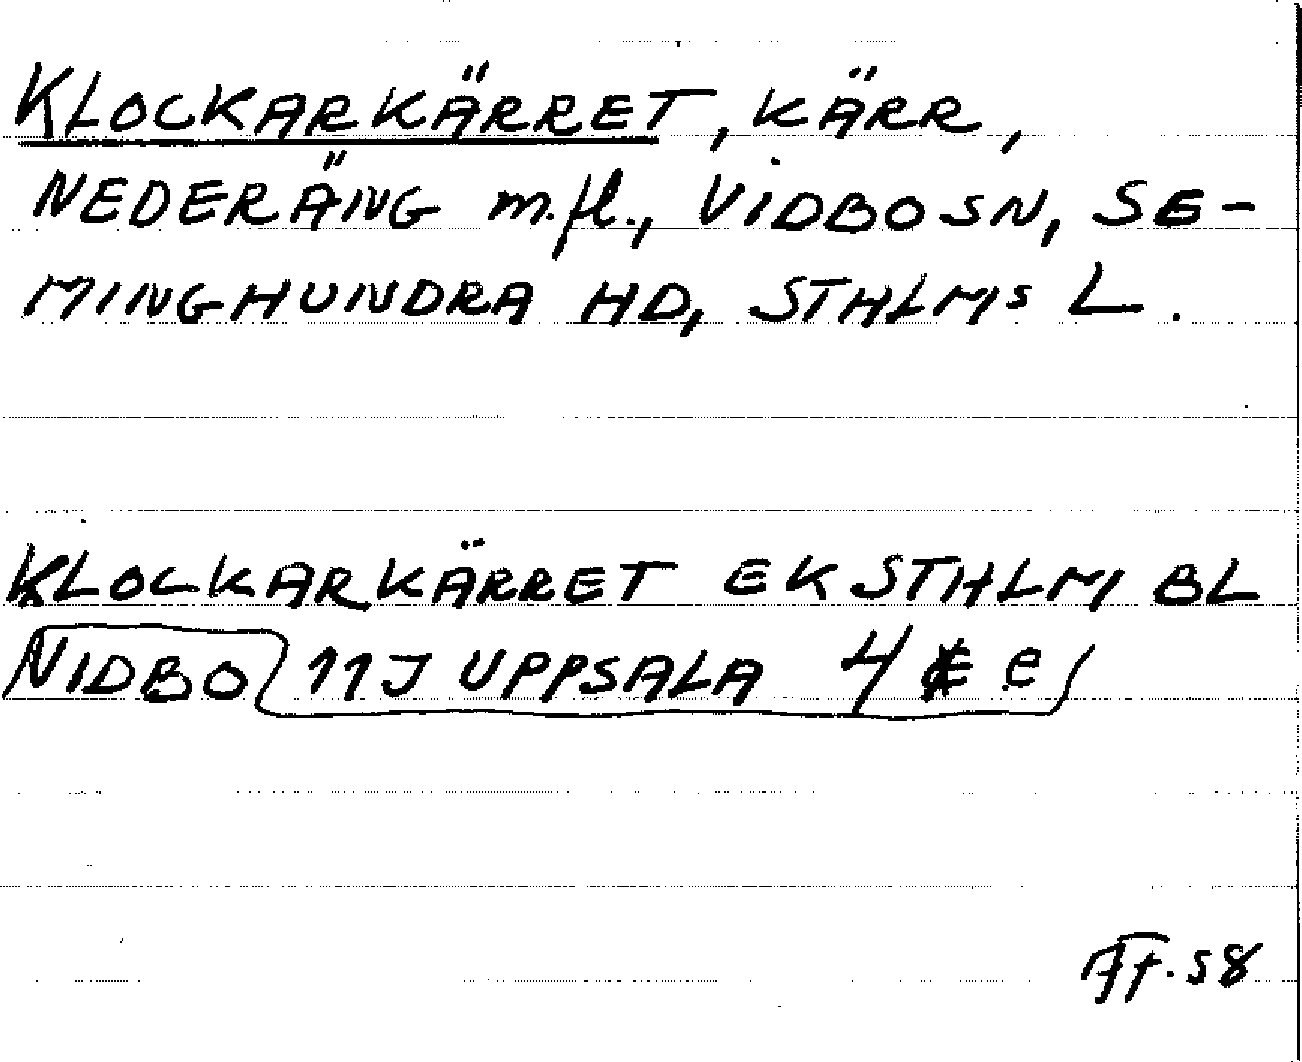 KLOCKARKÄRRET, KÄRR,
NEDERÄNG m.fl., VIDBO SN, SE-
MINGHUNDRA HD, STHLMS L.
KLOCKARKÄRRET EK STHLM BL
NIDBO 11J UPPSALA 4 e
58